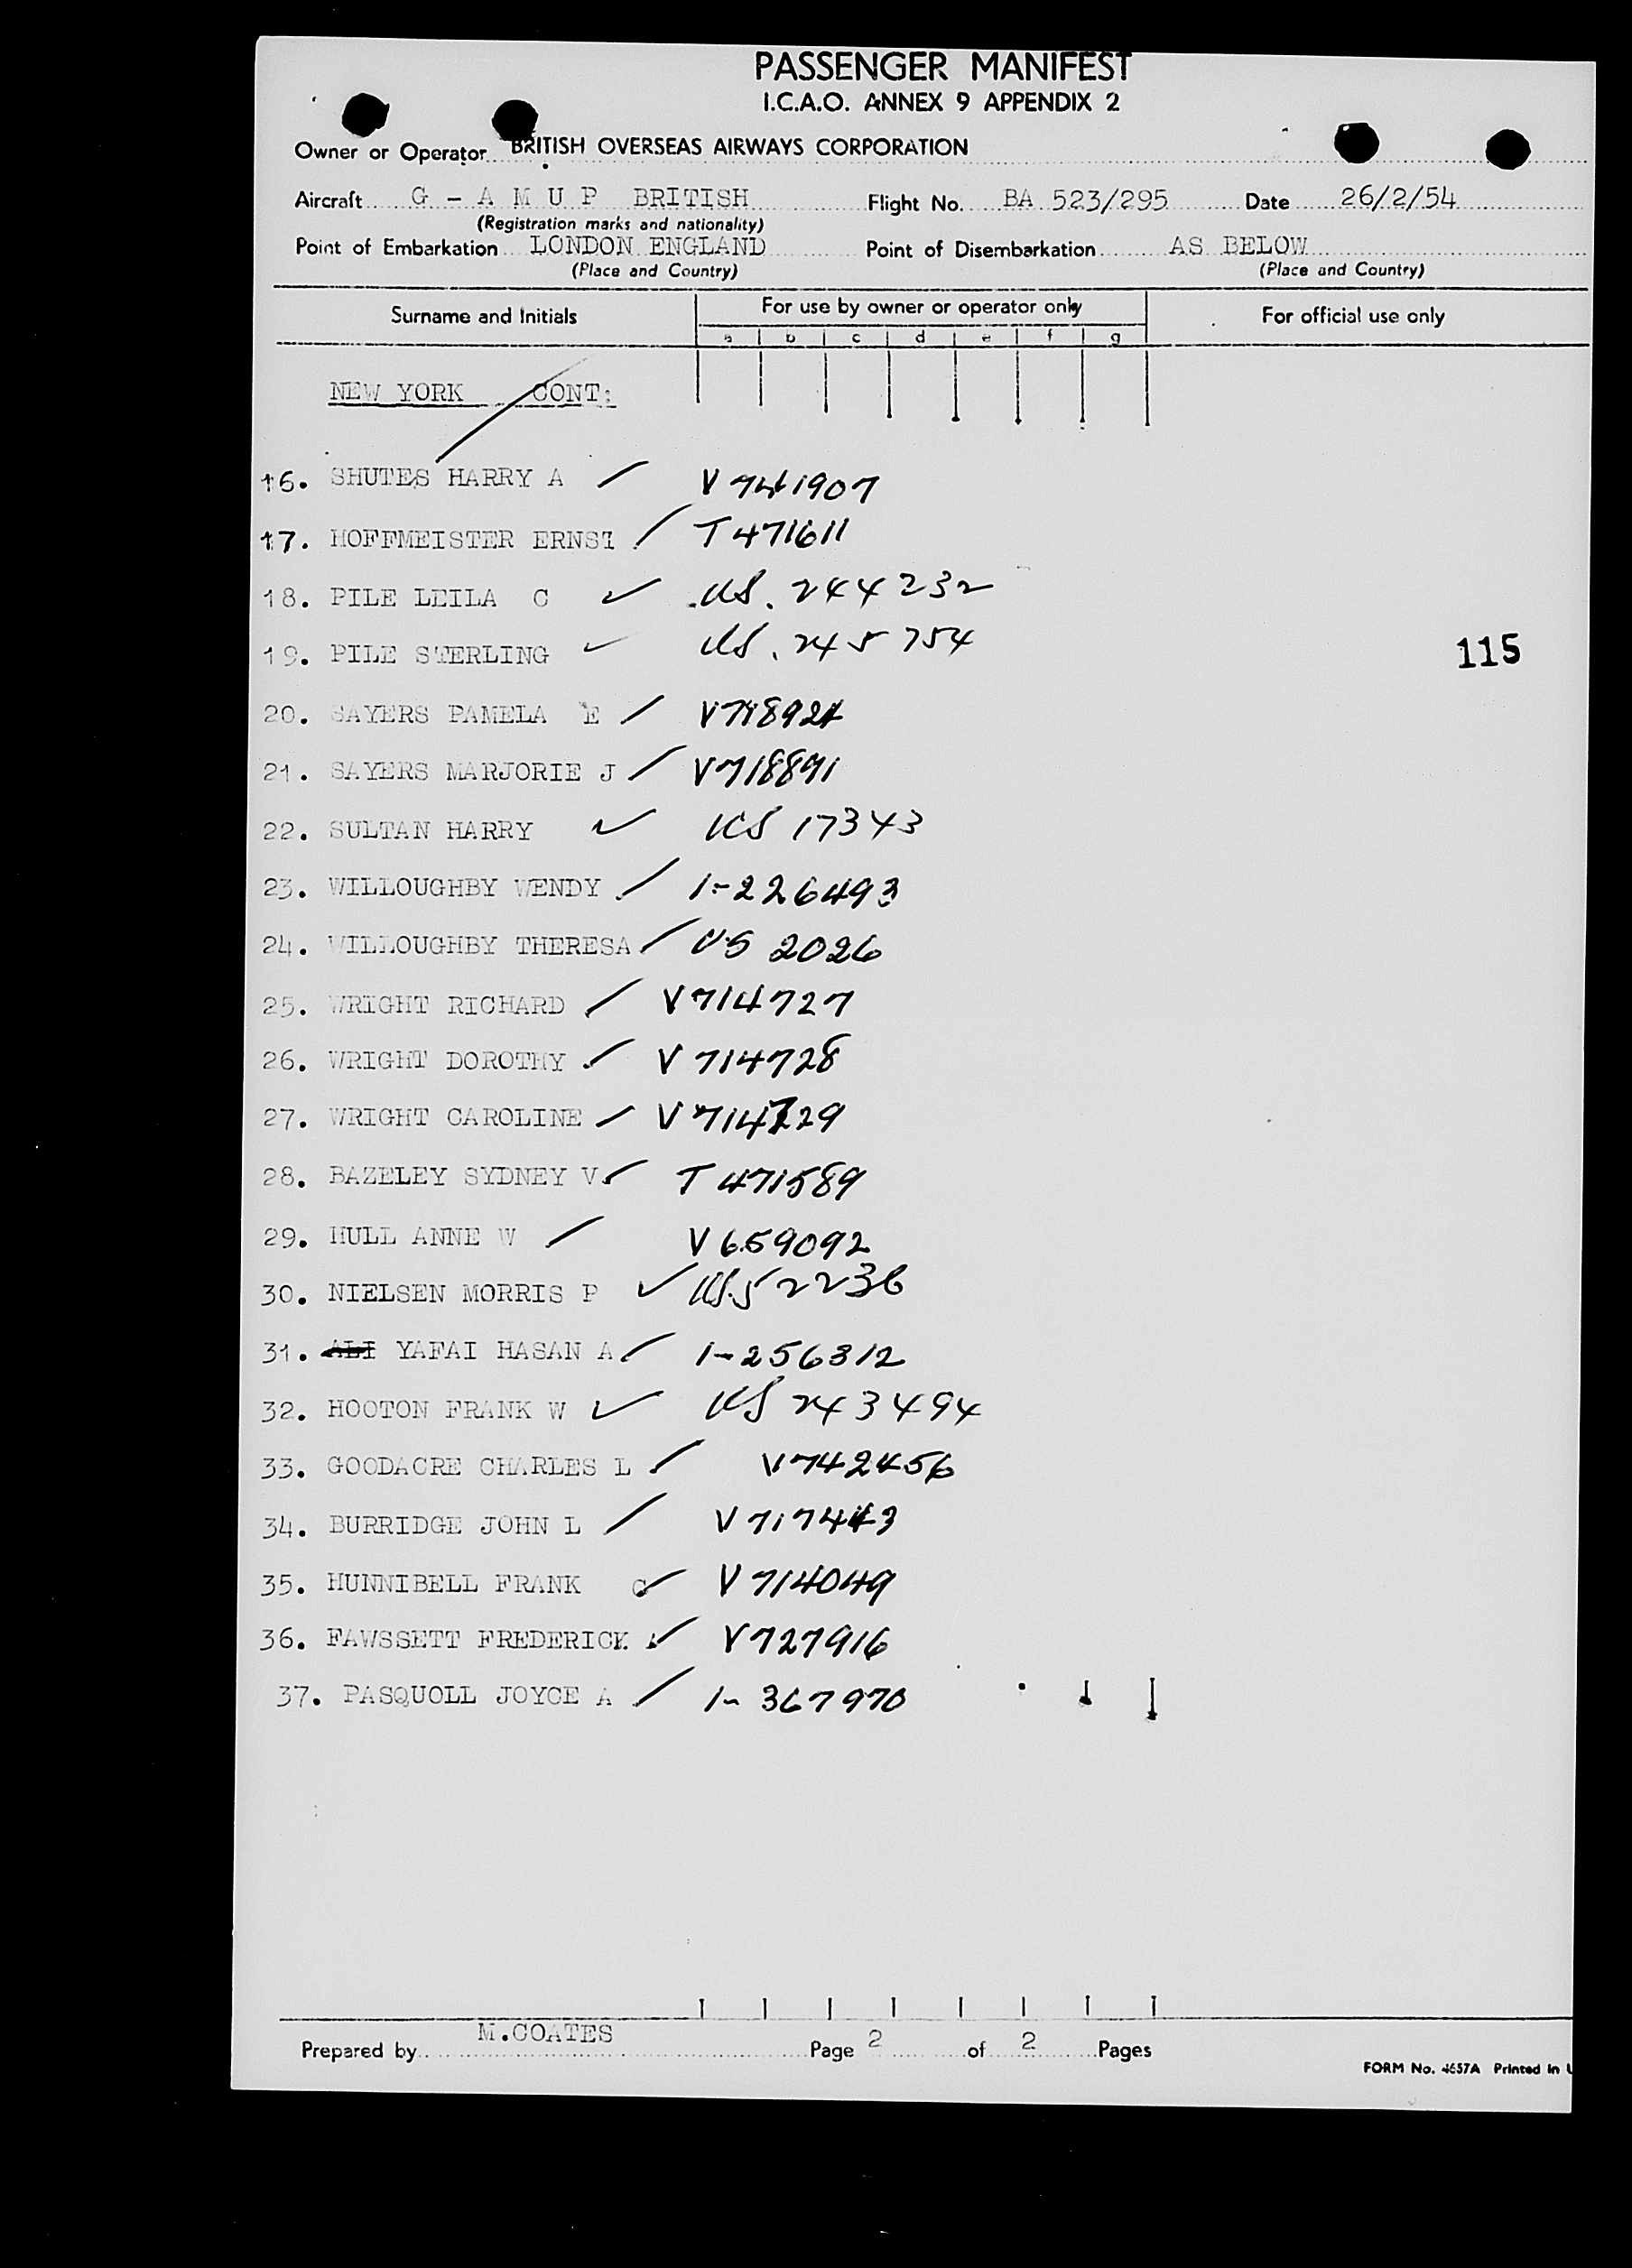 PASSENGER MANIFEST
I.C.A.O. ANNEX 9 APPENDIX 2
Owner or Operator BRITISH OVERSEAS AIRWAYS CORPORATION
Aircraft G - A M U P BRITISH Flight No. BA 523/295 Date 26/2/54
(Registration marks and nationality)
Point of Embarkation LONDON ENGLAND Point of Disembarkation AS BELOW
(Place and Country) (Place and Country)
Surname and Initials For use by owner or operator only For official use only
a b c d e f g
NEW YORK CONT:
16. SHUTES HARRY A V 741907
17. HOFFMEISTER ERNST T 471611
18. PILE LEILA C US. 244232
19. PILE STERLING US. 245754
115
20. SAYERS PAMELA E V718924
21. SAYERS MARJORIE J V718891
22. SULTAN HARRY US 17343
23. WILLOUGHBY WENDY 1-226493
24. WILLOUGHBY THERESA US 2026
25. WRIGHT RICHARD V714727
26. WRIGHT DOROTHY V 714728
27. WRIGHT CAROLINE V 714729
28. BAZELEY SYDNEY V T 471589
29. HULL ANNE W V 659092
30. NIELSEN MORRIS P US 52236
31. ALI YAFAI HASAN A 1-256312
32. HOOTON FRANK W US 243494
33. GOODACRE CHARLES L V742456
34. BURRIDGE JOHN L V 717443
35. HUNNIBELL FRANK C V 714049
36. FAWSSETT FREDERICK V727916
37. PASQUOLL JOYCE A 1-367970
Prepared by M.COATES Page 2 of 2 Pages
FORM No. 4657A Printed in